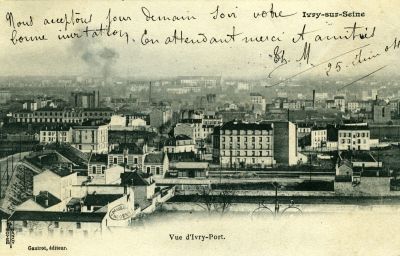 Nous acceptons pour demain soir votre
Ivry-sur-Seine
bonne invitation. En attendant merci et amitiés
25 juin
Vue d'Ivry-Port.
Gautrot, éditeur.